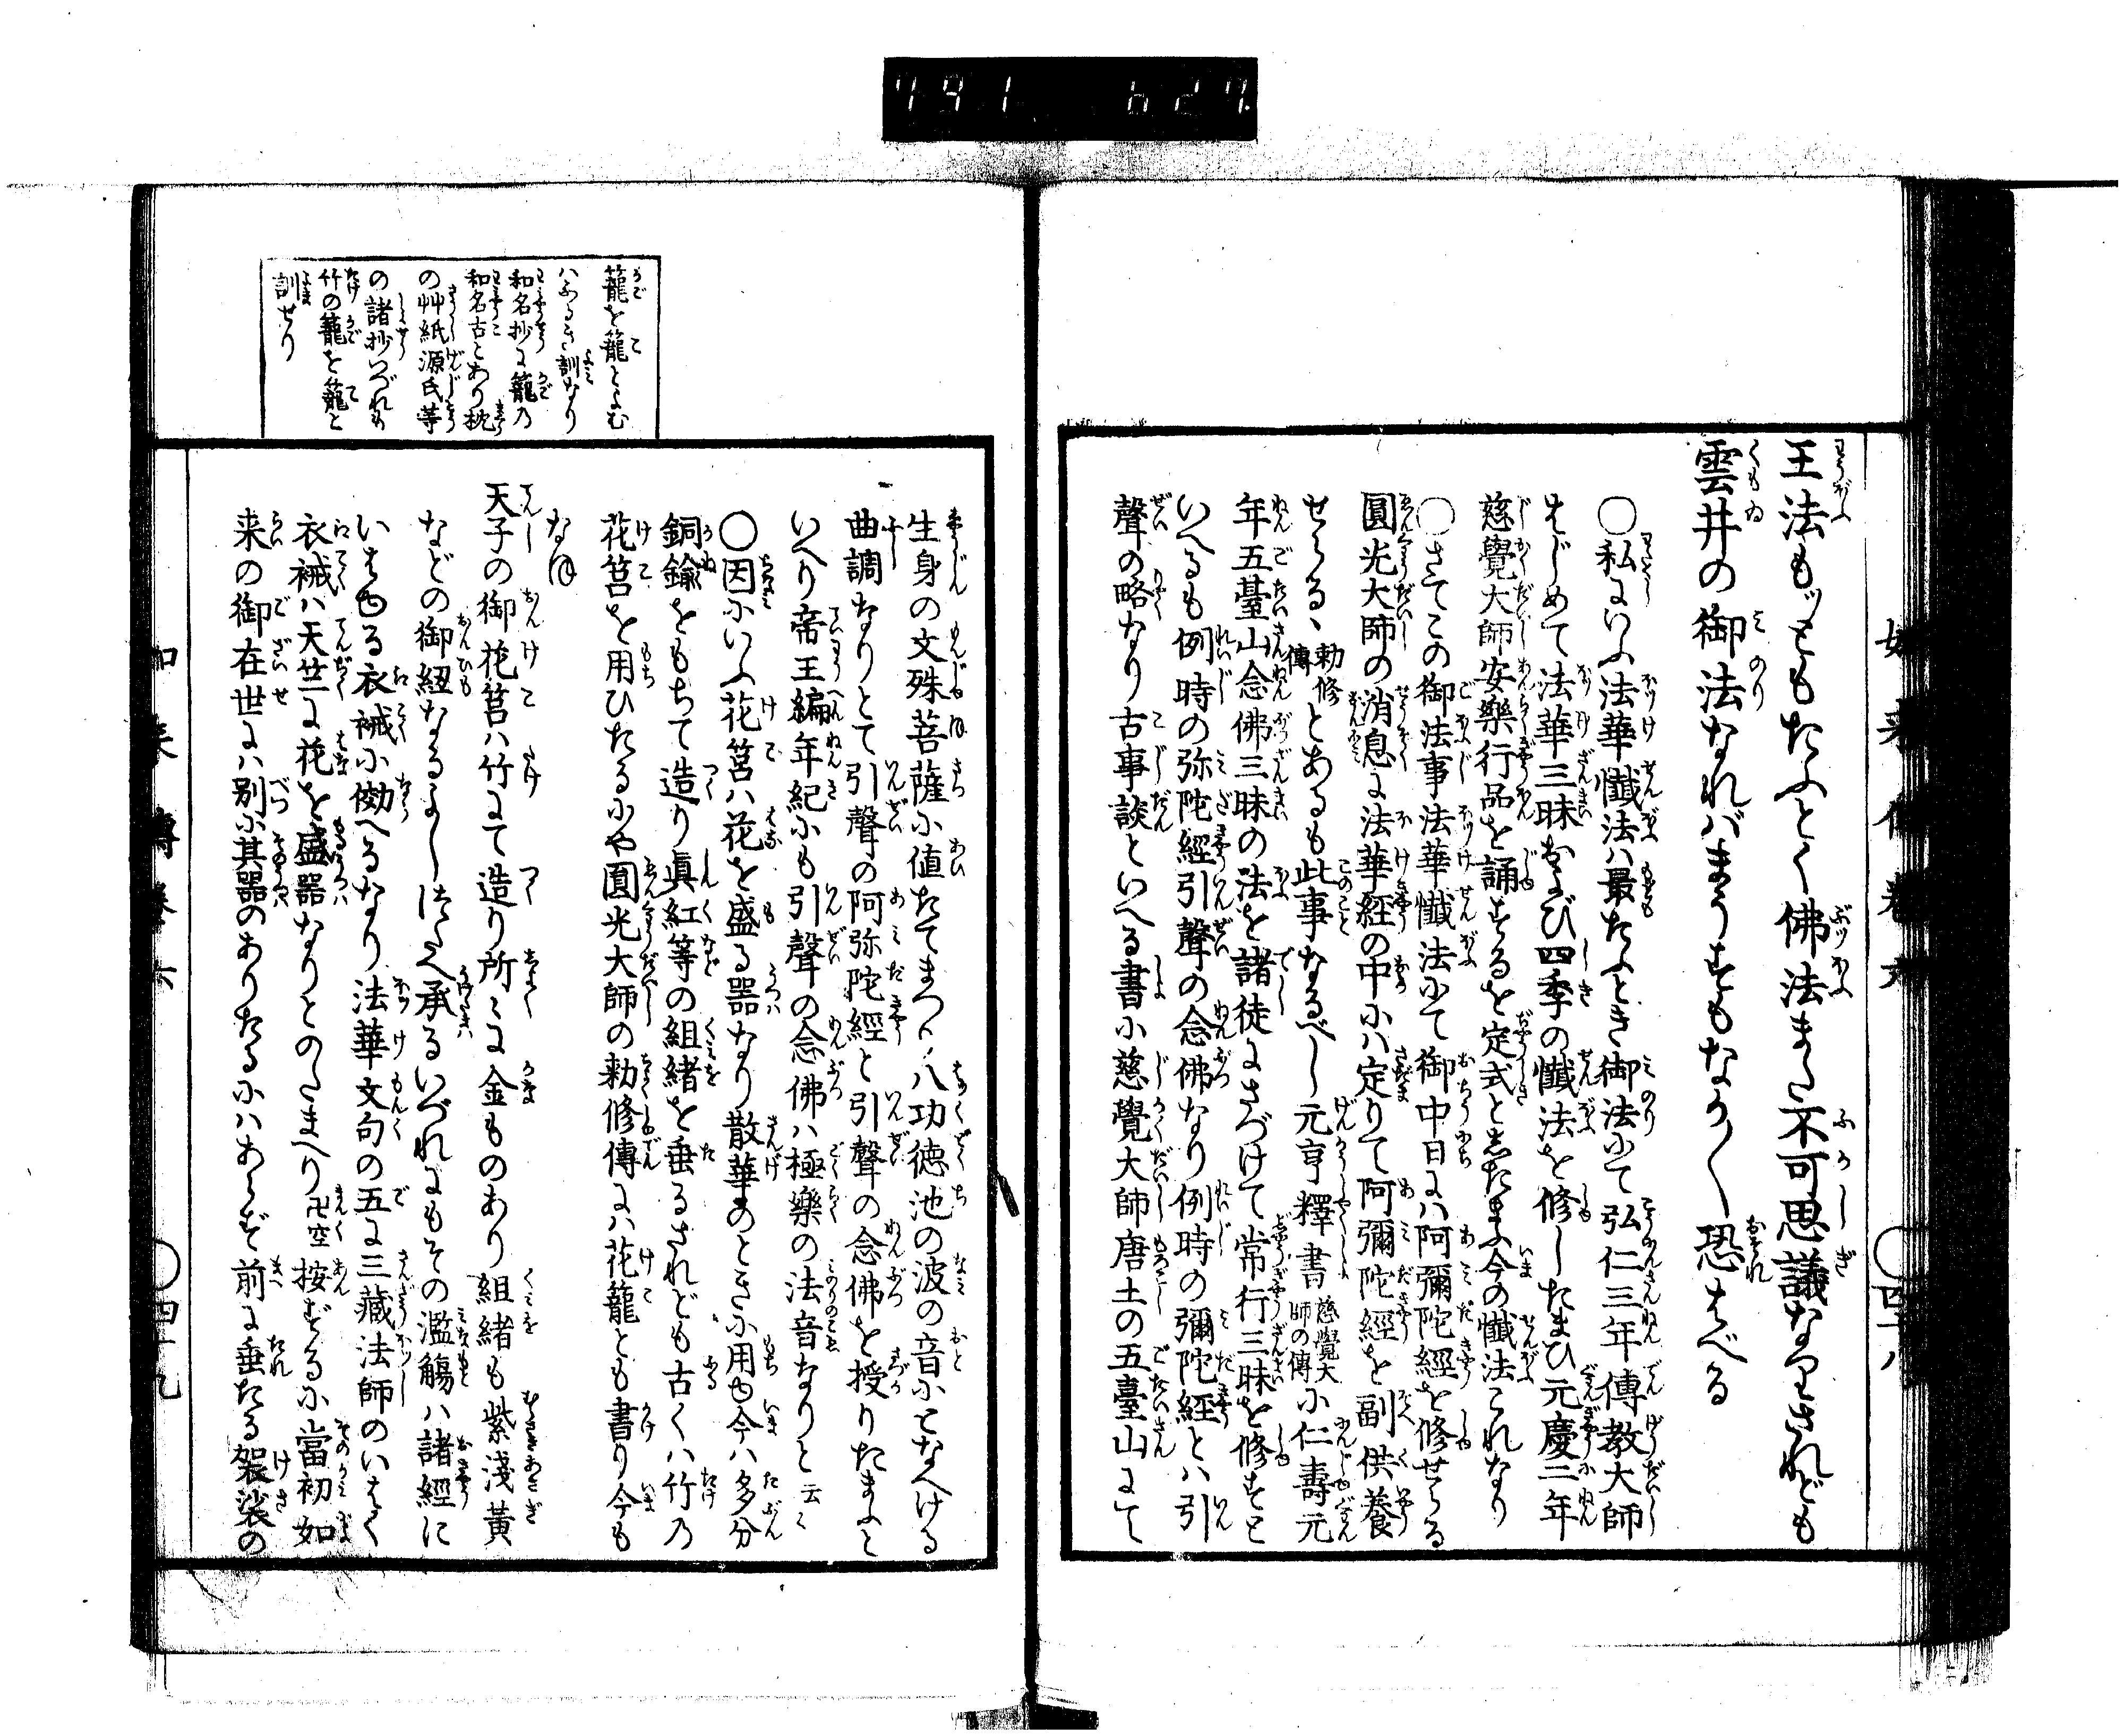 791 627
如来傳巻六
四十八
王法もツともたふとく佛法また不可思議なりされども
雲井の御法なれバまうすもなか〱恐はべる
○私にいふ法華懺法ハ最たふとき御法にて弘仁三年傳教大師
はじめて法華三昧および四季の懺法を修したまひ元慶二年
慈覺大師安樂行品を誦するを定式と志たまふ今の懺法これなり
○さてこの御法事法華懺法にて御中日にハ阿彌陀經を修せらる
圓光大師の消息に法華経の中にハ定りて阿彌陀經を副供養
せらる、勅修傳とあるも此事なるべし元亨釋書慈覺大師の傳に仁壽元
年五臺山念佛三昧の法を諸徒にさづけて常行三昧を修すと
いへるも例時の弥陀經引聲の念佛なり例時の彌陀経とハ引
聲の略なり古事談といへる書に慈覺大師唐土の五臺山にて
籠を籠とよむ
ハふるき訓なり
和名抄に籠乃
和名古とあり枕
の艸紙源氏等
の諸抄いづれも
竹の籠を籠と
訓せり
生身の文殊菩薩に値たてまつり八功徳池の波の音にとなへける
曲調なりとて引聲の阿弥陀經と引聲の念佛を授りたまふと
いへり帝王編年紀にも引聲の念佛ハ極樂の法音なりと云々
○因にいふ花筥ハ花を盛る器なり散華のときに用ゆ今ハ多分
銅鍮をもちて造り眞紅等の組緒を垂るされども古くハ竹乃
花筥を用ひたるにや圓光大師の勅修傳にハ花籠とも書り今も
なほ
天子の御花筥ハ竹にて造り所々に金ものあり組緒も紫淺黄
などの御紐なるよしつたへ承るいづれにもその濫觴ハ諸經に
いはゆる衣裓に傚へるなり法華文句の五に三藏法師のいはく
衣裓ハ天竺に花を盛器なりとのたまへり卍空按ずるに當初如
来の御在世にハ別に其器のありたるにハあらず前に垂たる袈裟の
如来傳巻六
四十九